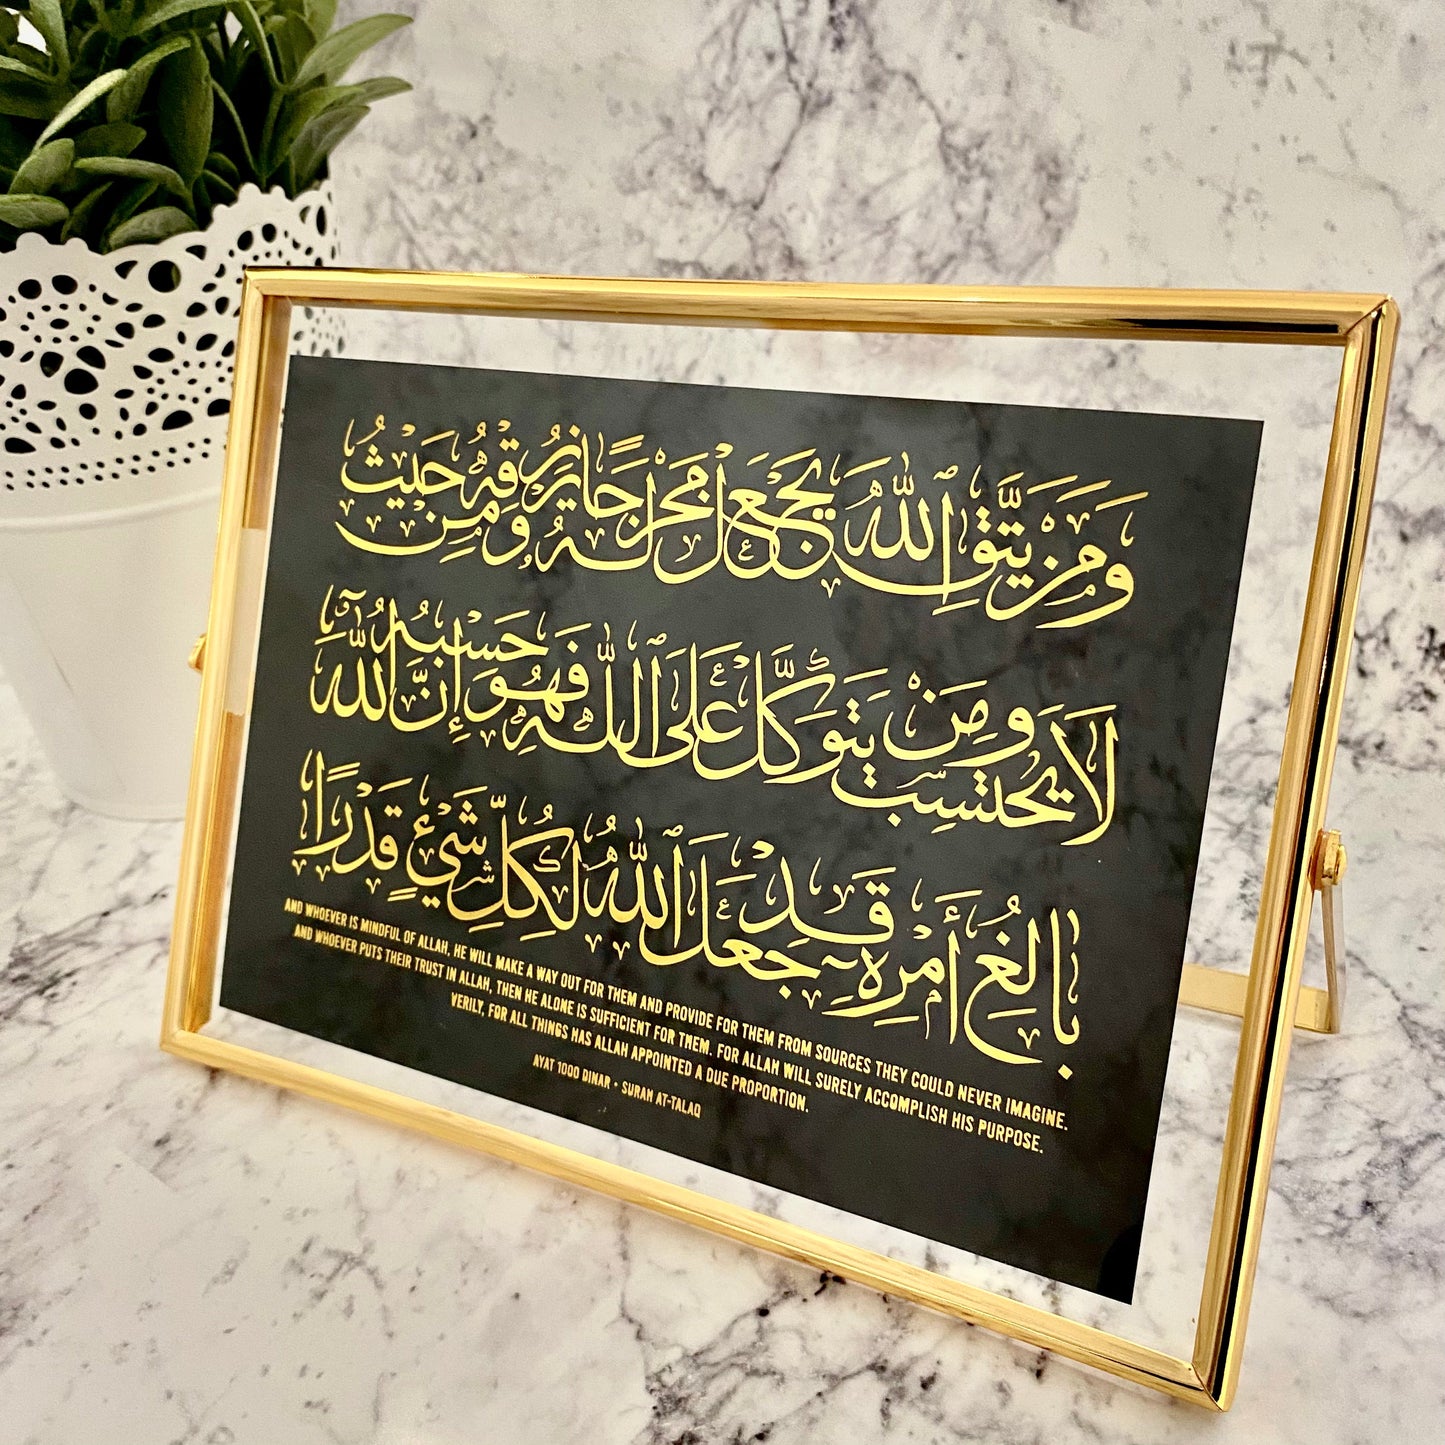 وَمَنْ يَتَّقِ ٱللَّهَ يَجْعَلْ لَهُ مَخْرَجًا وَيَرْزُقْهُ مِنْ حَيْثُ
لَا يَحْتَسِبُ وَمَنْ يَتَوَكَّلْ عَلَى ٱللَّهِ فَهُوَ حَسْبُهُ إِنَّ ٱللَّهَ
بَالِغُ أَمْرِهِ قَدْ جَعَلَ ٱللَّهُ لِكُلِّ شَيْءٍ قَدْرًا
AND WHOEVER IS MINDFUL OF ALLAH, HE WILL MAKE A WAY OUT FOR THEM AND PROVIDE FOR THEM FROM SOURCES THEY COULD NEVER IMAGINE.
AND WHOEVER PUTS THEIR TRUST IN ALLAH, THEN HE ALONE IS SUFFICIENT FOR THEM. FOR ALLAH WILL SURELY ACCOMPLISH HIS PURPOSE.
VERILY, FOR ALL THINGS HAS ALLAH APPOINTED A DUE PROPORTION.
AYAT 1000 DINAR • SURAH AT-TALAQ